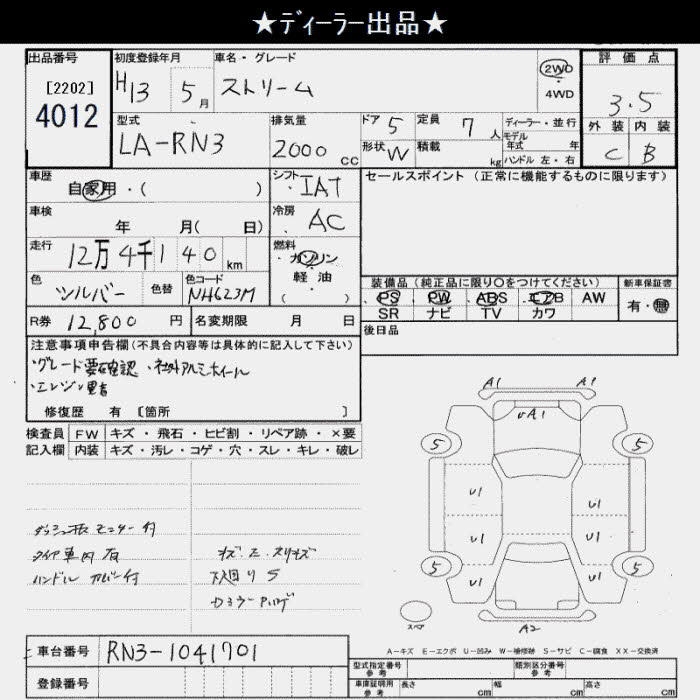 ★ディーラー出品★
出品番号 初度登録年月 車名・グレード 2WD 評価点
[2202] H13 5月 ストリーム 4WD 3.5
4012 型式 排気量 ドア 5 定員 7人 ディーラー・並行 外装 内装
LA-RN3 2000cc 形状 W 積載 kg モデル年式 年 C B
ハンドル 左・右
車歴 自家用・( ) シフト IAT セールスポイント (正常に機能するものに限ります)
車検 年 月( 日) 冷房 AC
走行 12万4千140km 燃料 ガソリン
軽油
( )
色 シルバー 色替 色コード NH623M
装備品 (純正品に限り○をつけてください) 新車保証書
PS PW ABS エアB AW 有・無
SR ナビ TV カワ
R券 12,800円 名変期限 月 日 後日品
注意事項申告欄(不具合内容等は具体的に記入して下さい)
・グレード要確認 ・社外アルミホイール
・エンジン異音
修復歴 有 [箇所 ]
A1 A1
検査員 FW キズ・飛石・ヒビ割・リペア跡・×要
記入欄 内装 キズ・汚レ・コゲ・穴・スレ・キレ・破レ
UA1
5 5
U1 U1
ダッシュ板 モニター付
U1 U1
タイヤ車内有 キズ エ スリキズ
ハンドル カバー付 下廻り S
5 5
U1 U1
スペア A2
車台番号 RN3-1041701
A-キズ E-エクボ U-凹み W-補修跡 S-サビ C-腐食 XX-交換済
登録番号
型式指定番号 参考 類別区分番号 参考
車庫証明用 参考 長さ cm 幅 cm 高さ cm